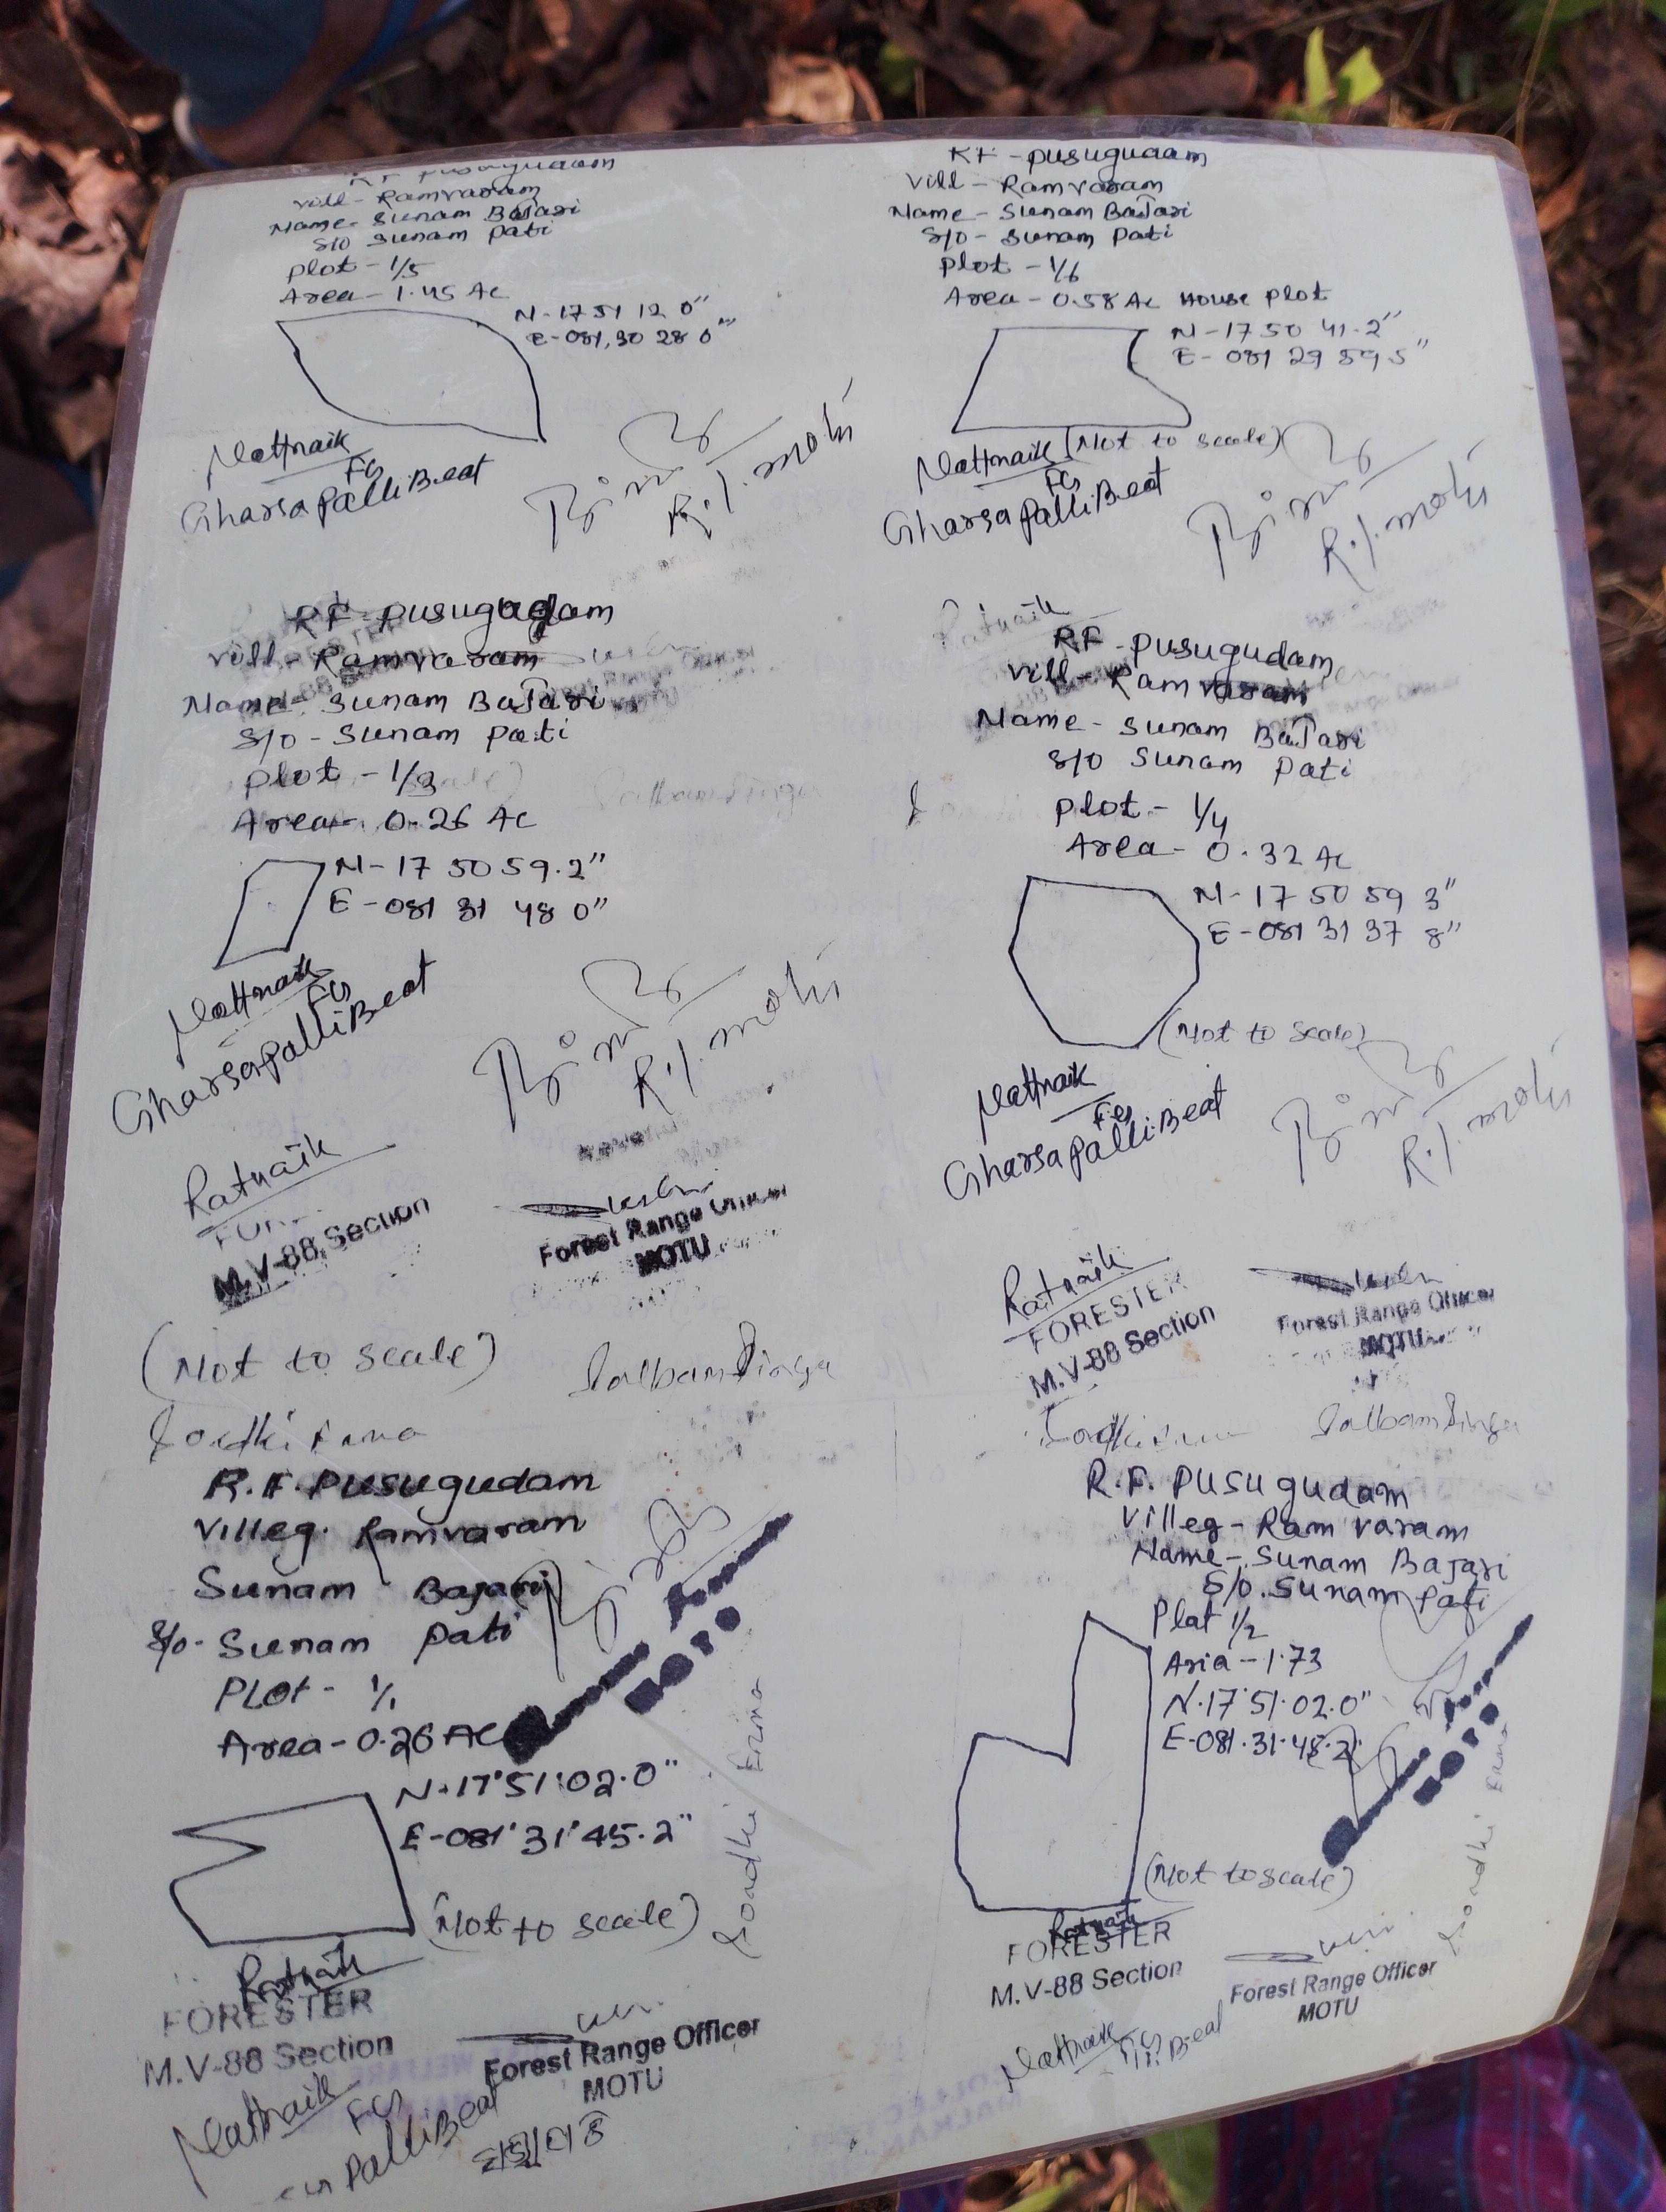 RF Pusugudam
Vill - Ramvaram
Name - Sunam BaJari
S/o Sunam Pati
Plot - 1/5
Area - 1.45 Ac
N - 17 51 12 0"
E - 081, 30 28 0"
Nattnaik
FG
GharsapalliBeat
R.I. motu
RF - pusugudam
Vill - Ramvaram
Name - Sunam BaJari
S/o - Sunam Pati
Plot - 1/6
Area - 0.58 Ac House Plot
N - 17 50 41.2"
E - 081 29 59.5"
(Not to scale)
Nattnaik
FG
GharsapalliBeat
R.I. motu
RF - Pusugudam
Vill - Ramvaram
Name - Sunam BaJari
S/o - Sunam Pati
Plot - 1/3
Area - 0.26 Ac
N - 17 50 59.2"
E - 081 31 48 0"
Nattnaik
FG
GharsapalliBeat
R.I. motu
Ratnaik
M.V-88 Section
Forest Range Officer
MOTU
(Not to scale)
RF - Pusugudam
Vill - Ramvaram
Name - Sunam BaJari
S/o Sunam Pati
Plot - 1/4
Area - 0.32 Ac
N - 17 50 59 3"
E - 081 31 37 8"
(Not to scale)
Nattnaik
FG
GharsapalliBeat
R.I. motu
Ratnaik
FORESTER
M.V-88 Section
Forest Range Officer
MOTU
R.F. Pusugudam
Villeg. Ramvaram
Sunam Bajari
S/o. Sunam Pati
PLot - 1/1
Area - 0.26 Ac
N-17°51'02.0"
E-081°31'45.2"
(Not to scale)
Ratnaik
FORESTER
M.V-88 Section
Forest Range Officer
MOTU
Nattnaik
FG
PalliBeat
R.F. Pusugudam
Villeg - Ramvaram
Name - Sunam Bajari
S/o. Sunam Pati
Plat 1/2
Aria - 1.73
N.17°51.02.0"
E-081.31.45.2"
(Not to scale)
Ratnaik
FORESTER
M.V-88 Section
Forest Range Officer
MOTU
Nattnaik
FG
Beat